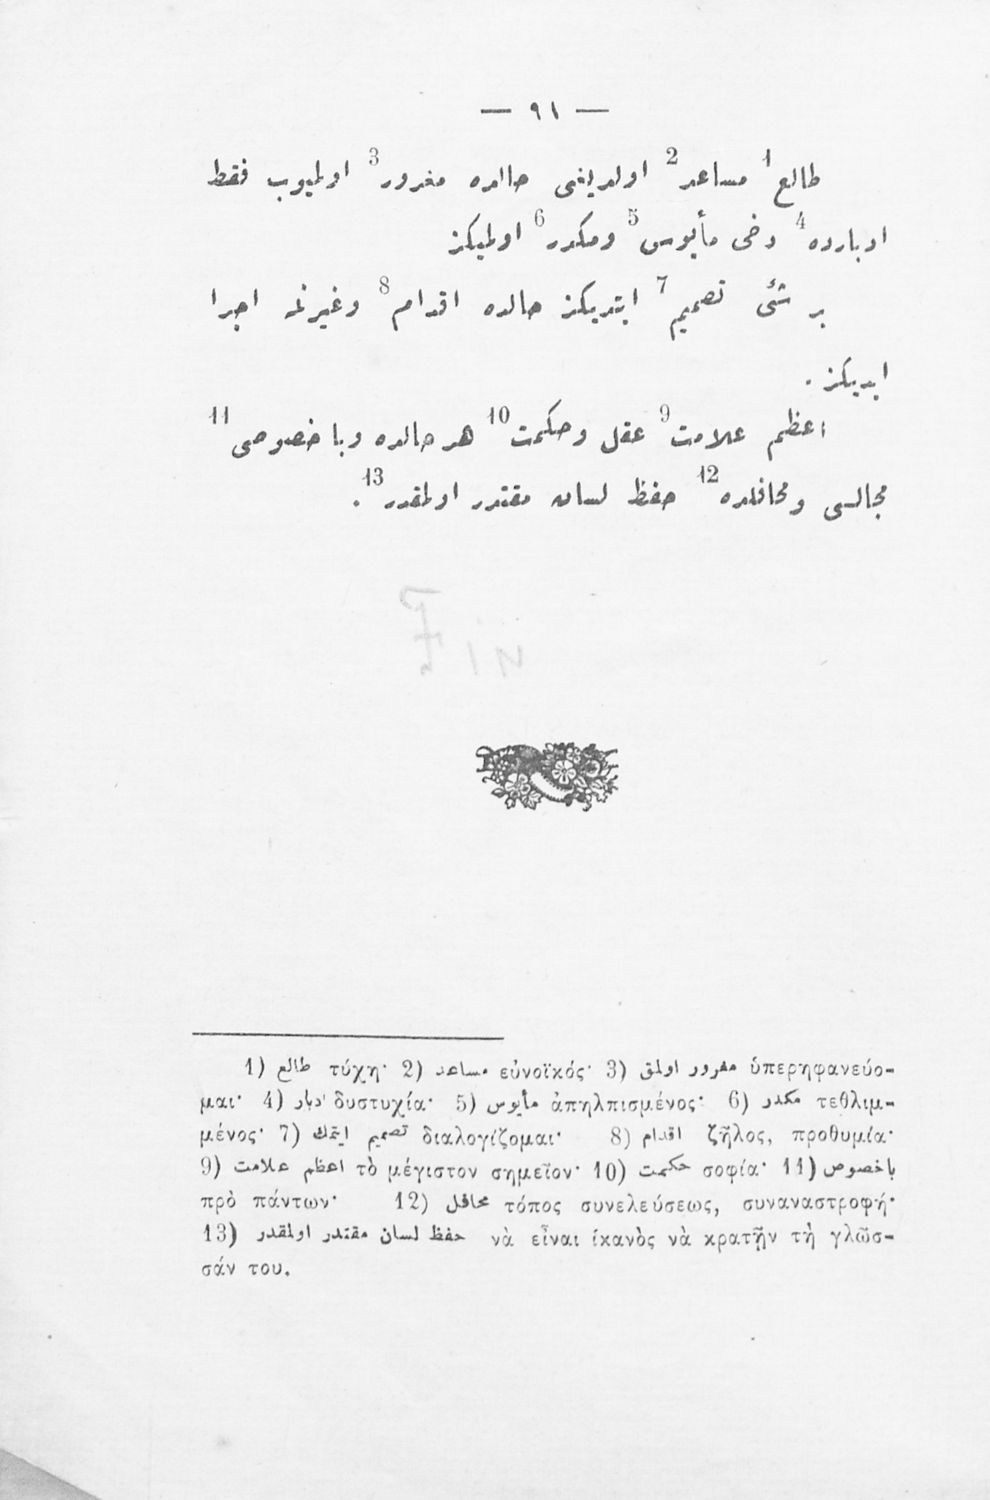 — ٩١ —
طالع1 مساعد2 اولديغى حالده مغرور3 اولميوب فقط
ادبارده4 دخى مأيوس5 ومكدر6 اولميكز
بر شئى تصميم7 ايتديكز حالده اقدام8 وغيرتله اجرا
ايديكز .
اعظم علامت9 عقل وحكمت10 هر حالده وبا خصوصى11
مجالس ومحافلده12 حفظ لسانه مقتدر اولمقدر13 .
1) طالع τύχη· 2) مساعد εὐνοϊκός· 3) مغرور اولمق ὑπερηφανεύο-
μαι· 4) ادبار δυστυχία· 5) مأيوس ἀπηλπισμένος· 6) مكدر τεθλιμ-
μένος· 7) تصميم ايتمك διαλογίζομαι· 8) اقدام ζῆλος, προθυμία·
9) اعظم علامت τὸ μέγιστον σημεῖον· 10) حكمت σοφία· 11) باخصوص
πρὸ πάντων· 12) محافل τόπος συνελεύσεως, συναναστροφή·
13) حفظ لسان مقتدر اولمقدر νὰ εἶναι ἱκανὸς νὰ κρατῇν τὴ γλῶσ-
σάν του.